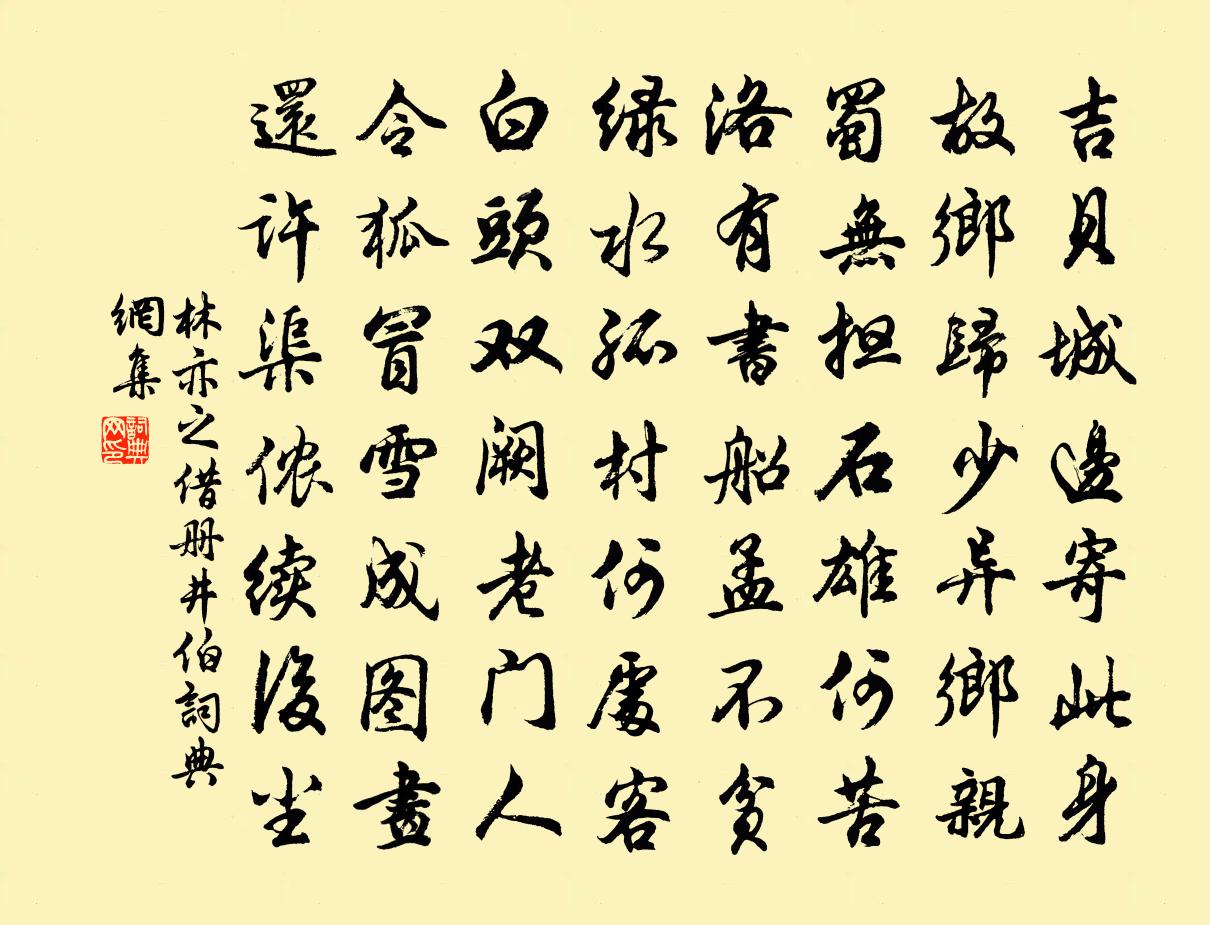 吉貝城邊寄此身
故鄉歸少异鄉親
蜀無担石雄何苦
洛有書船孟不貧
绿水孤村何處客
白頭双阙老门人
令狐冒雪成图畫
還许渠侬续後尘
林亦之借册井伯詞典
網集
詞典
网印